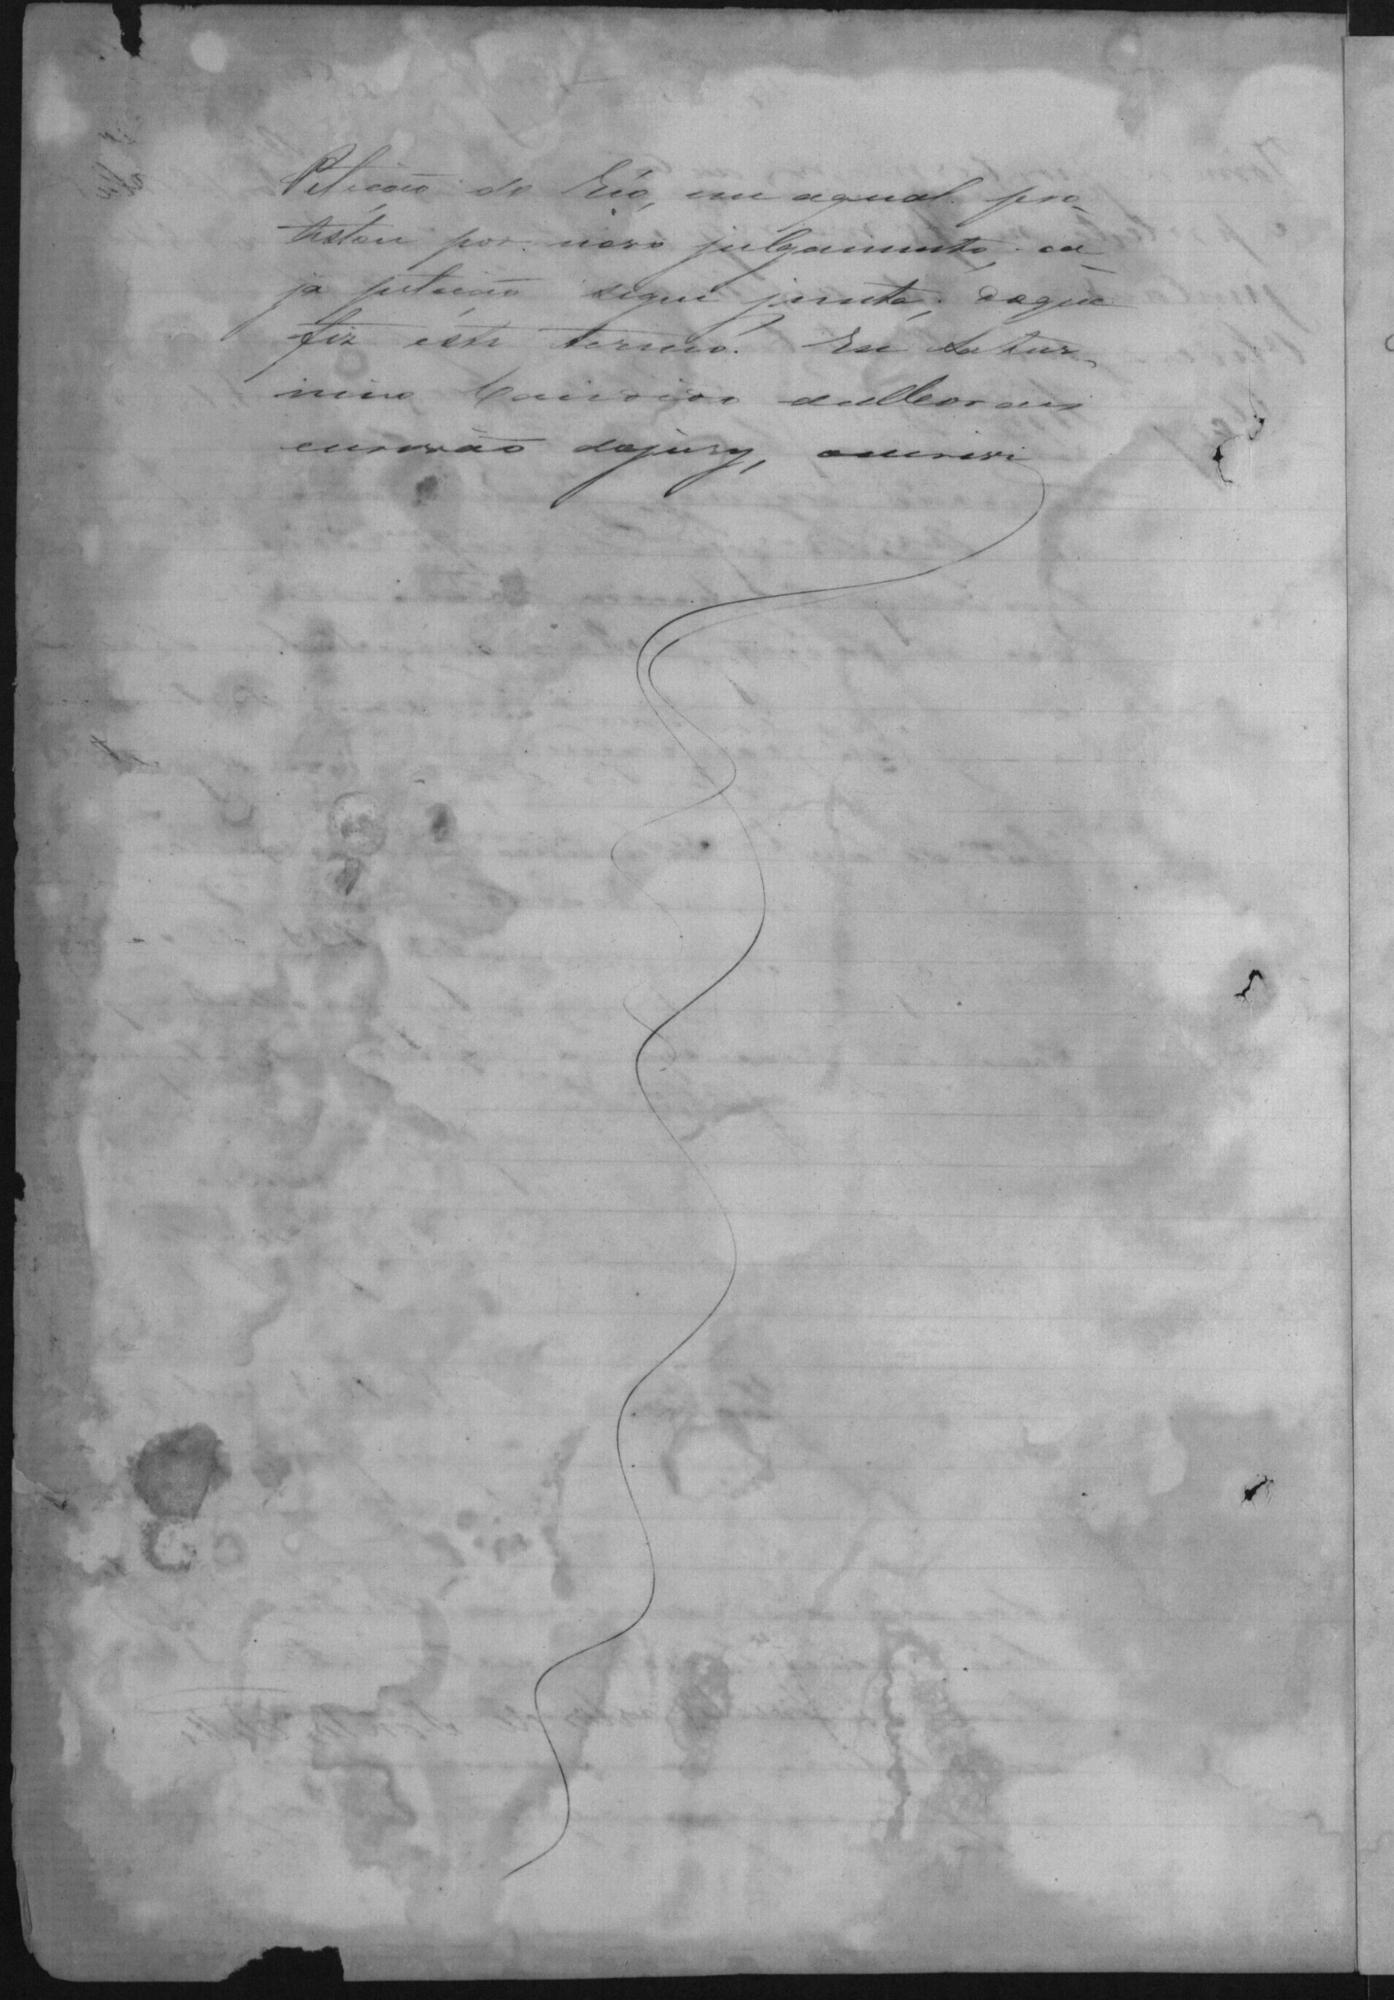 Petição do Réo, em aqual pro-
testou por novo julgamento, cu-
ja petição segue junta; doque
fiz este termo. Eu Satur-
nino de Moraes
escrivão dojury, oescrivi